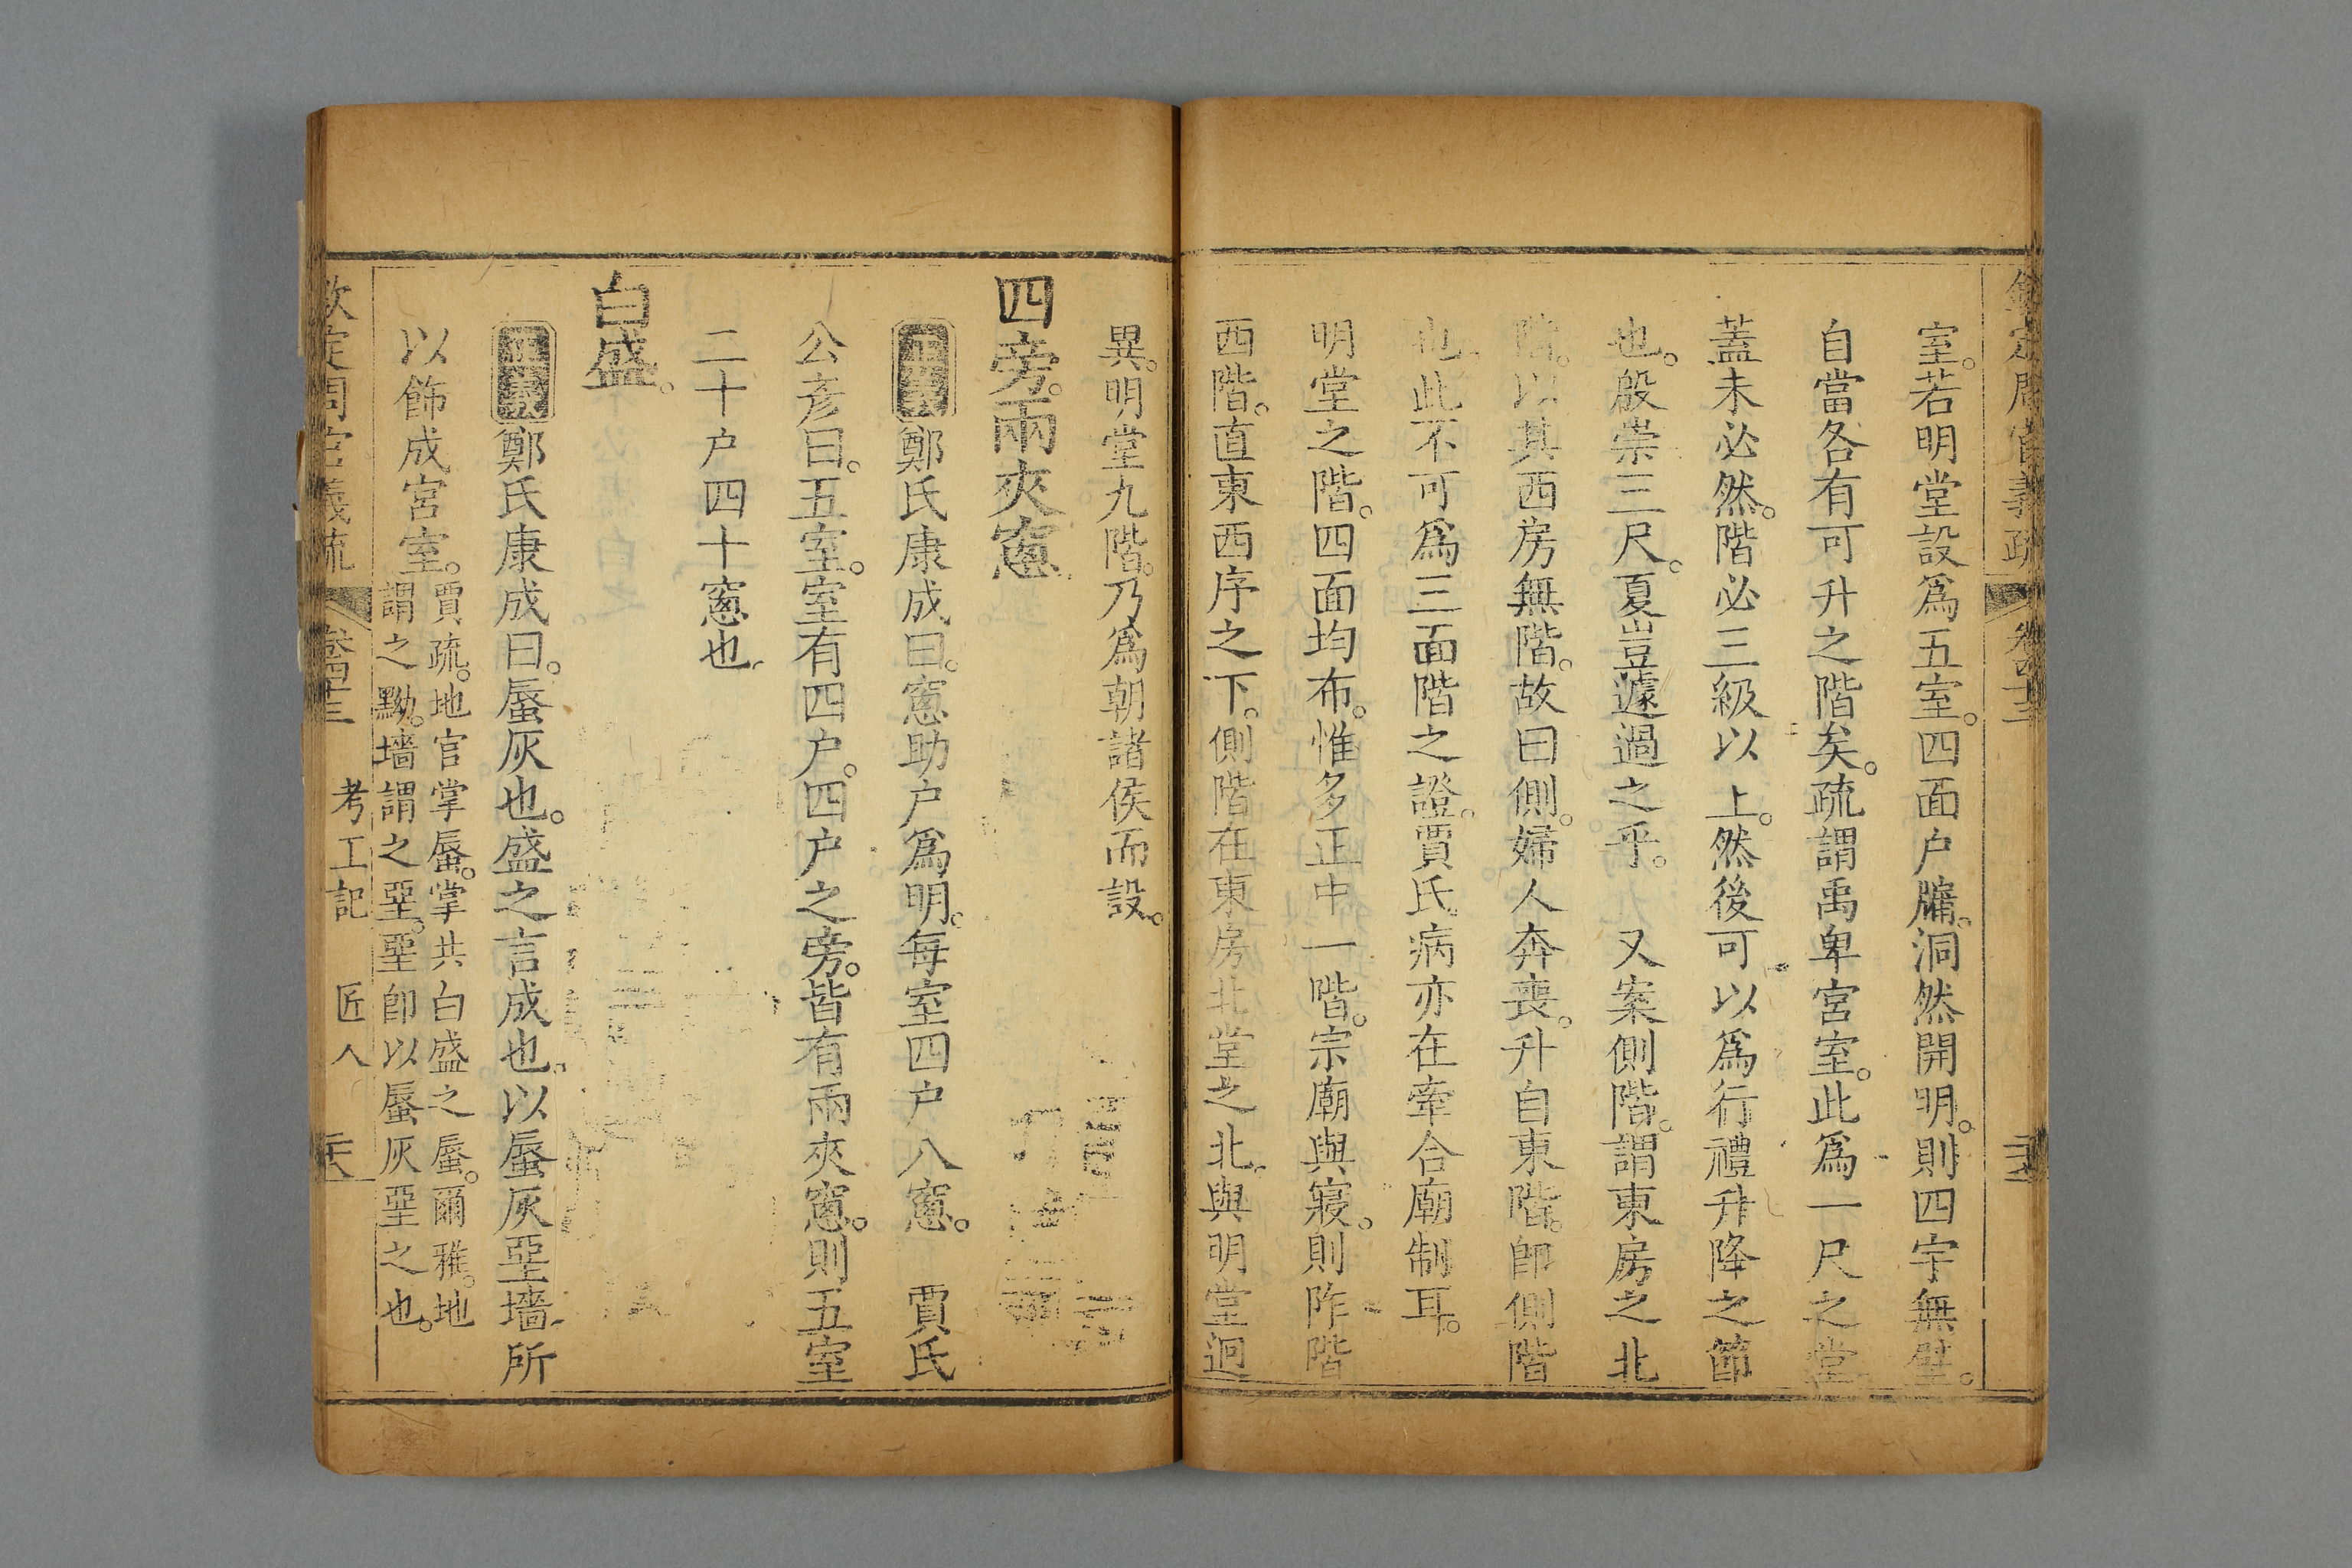 欽定周官義疏 卷四十三
室。若明堂設爲五室。四面户牖。洞然開明。則四宇無壁。
自當各有可升之階矣。疏謂禹卑宮室。此爲一尺之堂。
蓋未必然。階必三級以上。然後可以爲行禮升降之節
也。殷崇三尺。夏豈遽過之乎。 又案側階。謂東房之北
階。以其西房無階。故曰側。婦人奔喪。升自東階。卽側階
也。此不可爲三面階之證。賈氏病亦在牽合廟制耳。
明堂之階。四面均布。惟多正中一階。宗廟與寢。則阼階
西階。直東西序之下。側階在東房北堂之北。與明堂迥
異。明堂九階。乃爲朝諸侯而設。
四旁。兩夾窻
正義 鄭氏康成曰。窻助户爲明。每室四户八窻。 賈氏
公彥曰。五室。室有四户。四户之旁。皆有兩夾窻。則五室
二十户四十窻也。
白盛。
正義 鄭氏康成曰。蜃灰也。盛之言成也。以蜃灰堊墻。所
以飾成宮室。賈疏。地官掌蜃。掌共白盛之蜃。爾雅。地
謂之黝。墻謂之堊。堊卽以蜃灰堊之也。
欽定周官義疏 卷四十三 考工記 匠人 二十六